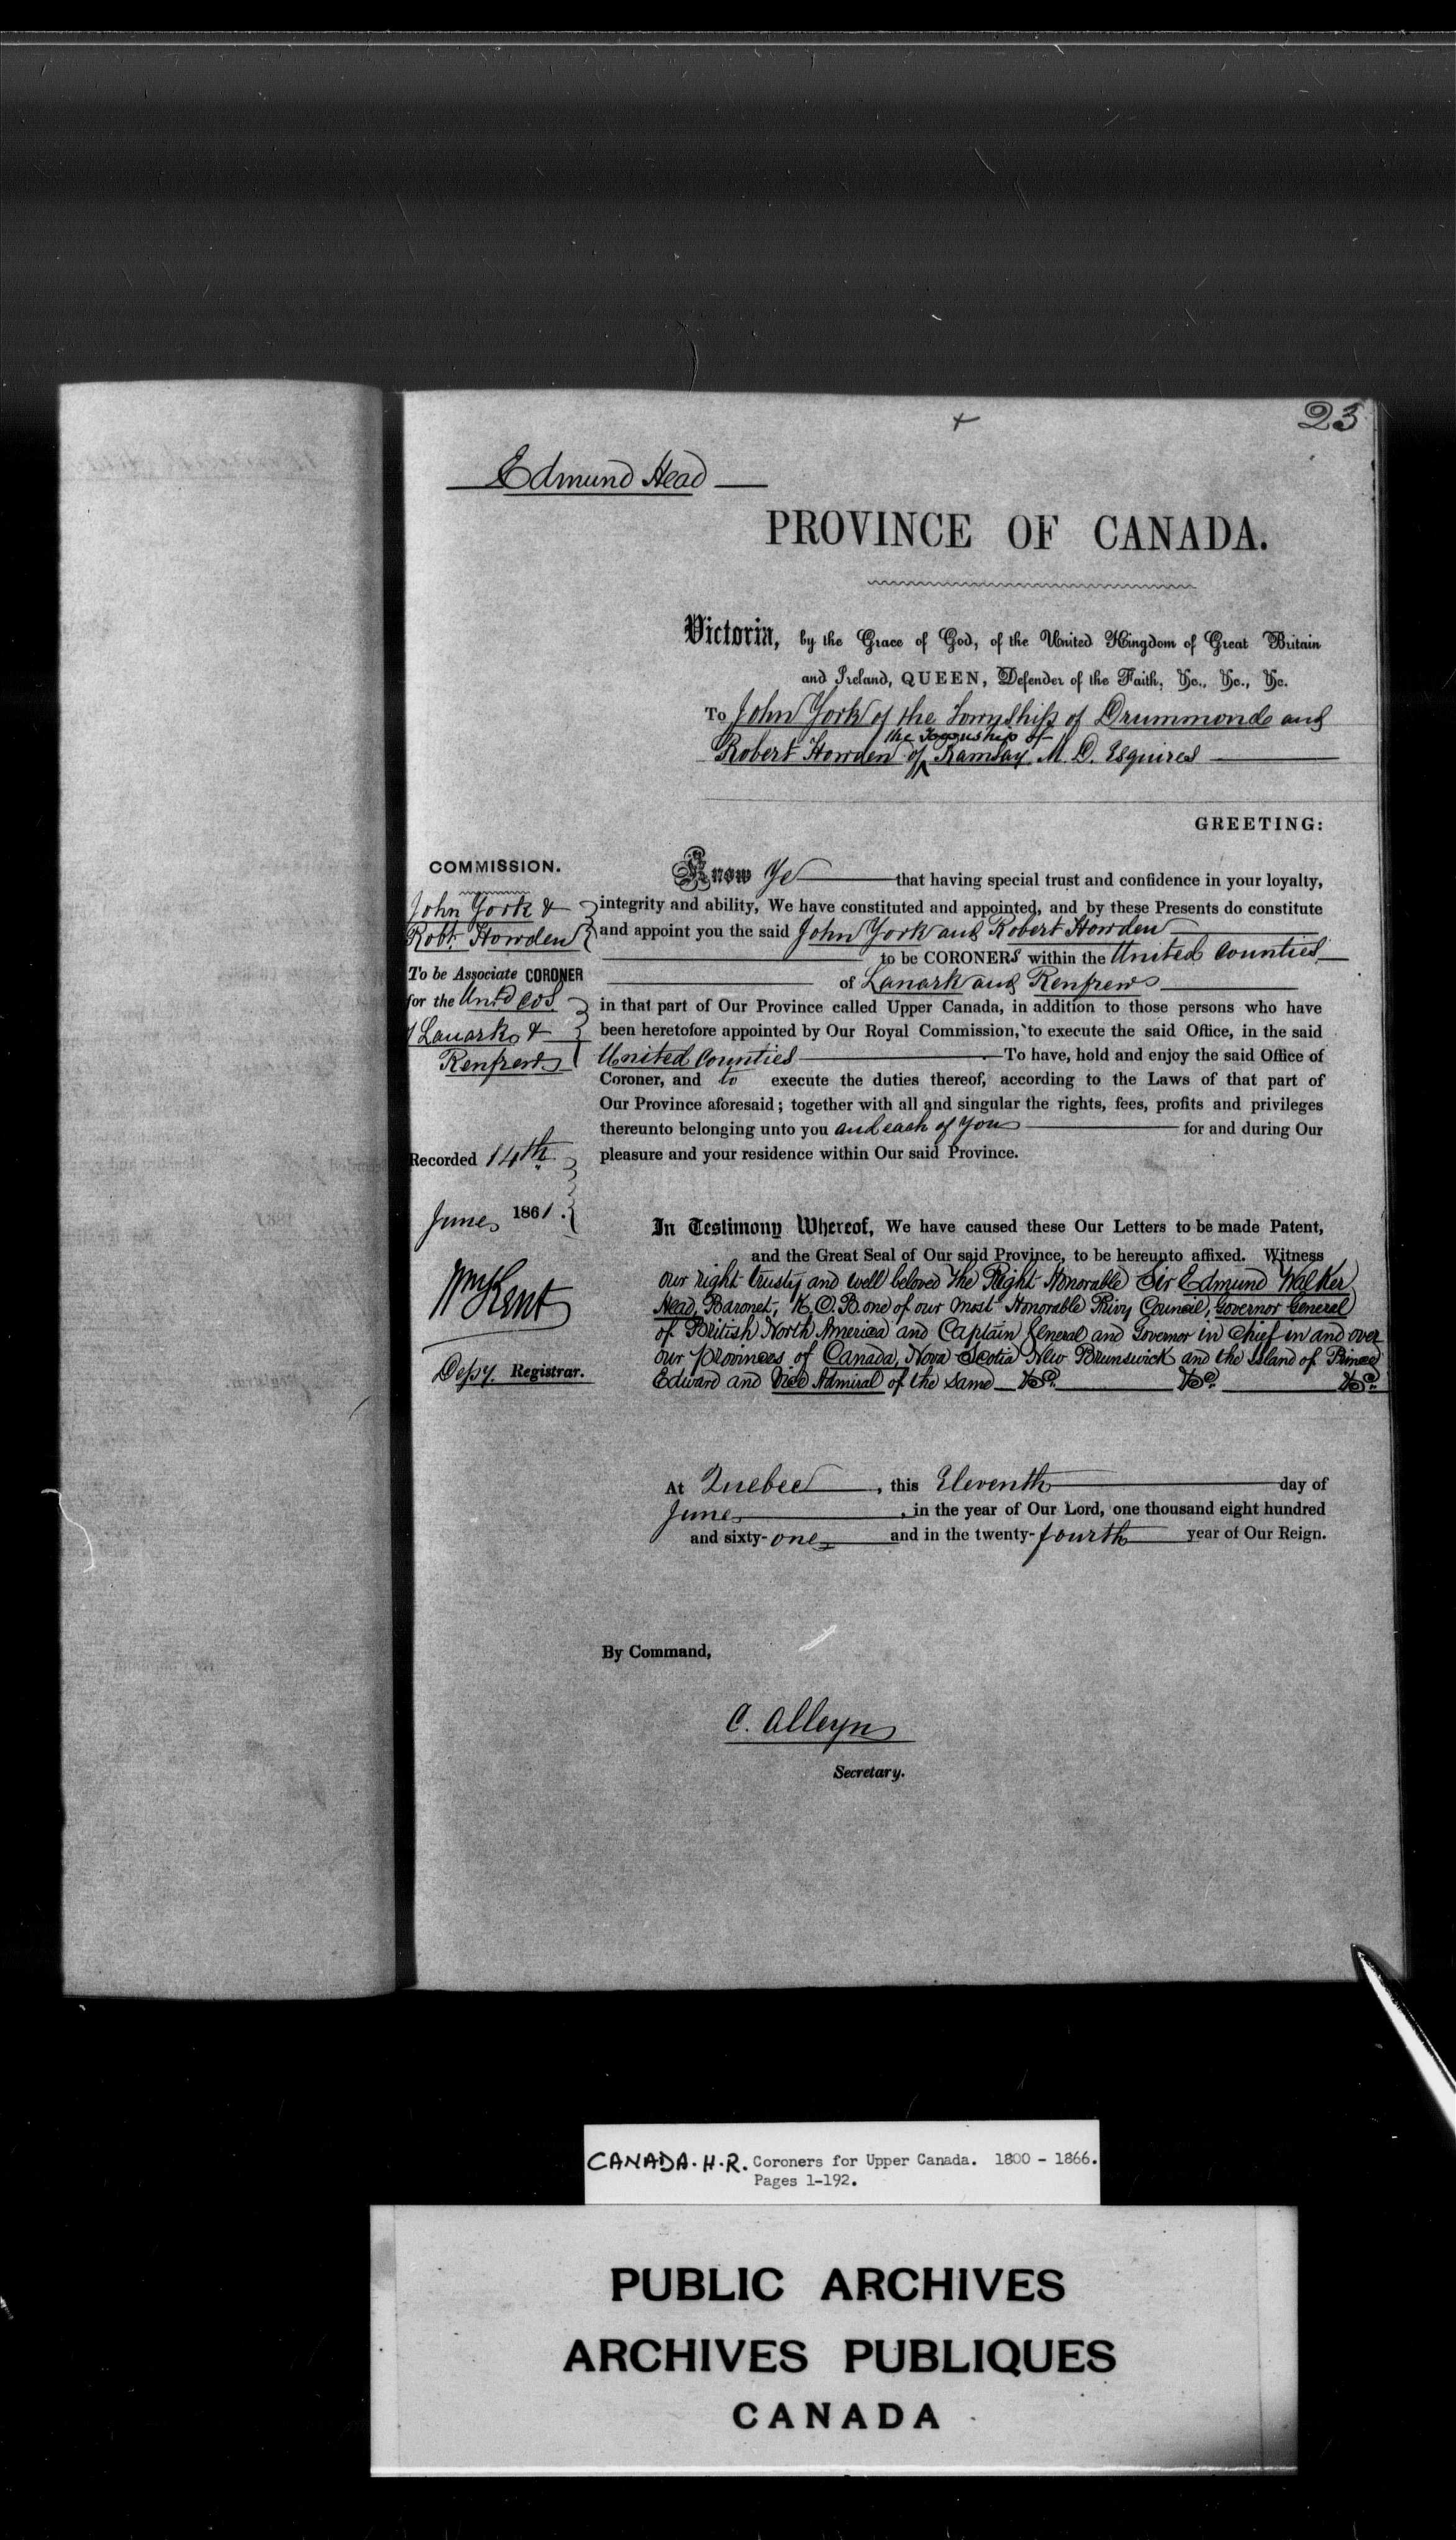 23
Edmund Head
PROVINCE OF CANADA.
Victoria, by the Grace of God, of the United Kingdom of Great Britain
and Ireland, QUEEN, Defender of the Faith, &c., &c., &c.
To John York of the Township of Drummond and
the Township of
Robert Howden of Ramsay M. D. Esquires
GREETING:
COMMISSION.
John York &
Robt. Howden
To be Associate CORONER
for the Untd Cos.
f Lanark &
Renfrew
Recorded 14th
June 1861.
Wm Kent
Depy. Registrar.
Know Ye that having special trust and confidence in your loyalty,
integrity and ability, We have constituted and appointed, and by these Presents do constitute
and appoint you the said John York and Robert Howden
to be CORONERS within the United Counties
of Lanark and Renfrew
in that part of Our Province called Upper Canada, in addition to those persons who have
been heretofore appointed by Our Royal Commission, to execute the said Office, in the said
United Counties To have, hold and enjoy the said Office of
Coroner, and to execute the duties thereof, according to the Laws of that part of
Our Province aforesaid; together with all and singular the rights, fees, profits and privileges
thereunto belonging unto you and each of you for and during Our
pleasure and your residence within Our said Province.
In Testimony Whereof, We have caused these Our Letters to be made Patent,
and the Great Seal of Our said Province, to be hereunto affixed. Witness
our right trusty and well beloved The Right Honorable Sir Edmund Walker
Head, Baronet, K.C.B. one of our most Honorable Privy Council, Governor General
of British North America and Captain General and Governor in Chief in and over
our provinces of Canada, Nova Scotia New Brunswick and the Island of Prince
Edward and Vice Admiral of the same &c. &c. &c.
At Quebec, this Eleventh day of
June, in the year of Our Lord, one thousand eight hundred
and sixty-one and in the twenty-fourth year of Our Reign.
By Command,
C. Alleyn
Secretary.
CANADA. H.R. Coroners for Upper Canada. 1800 - 1866.
Pages 1-192.
PUBLIC ARCHIVES
ARCHIVES PUBLIQUES
CANADA